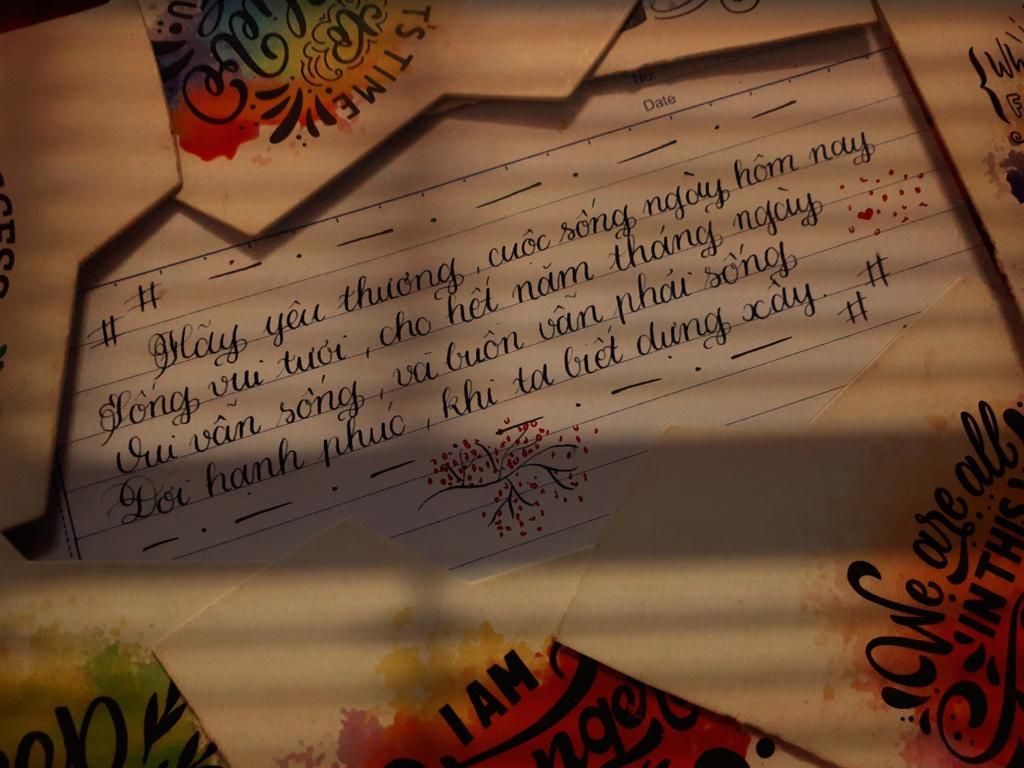 IT'S TIME
No.
Date
# Hãy yêu thương, cuộc sống ngày hôm nay
# Sống vui tươi, cho hết năm tháng ngày
Vui vẫn sống, và buồn vẫn phải sống #
Đời hạnh phúc, khi ta biết dựng xây. #
We are all
IN THIS
I AM